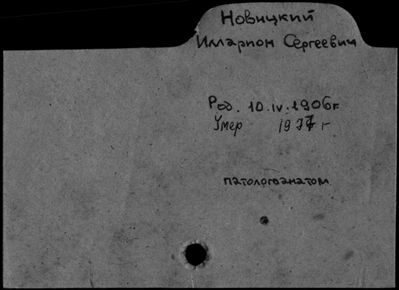 Новицкий
Илларион Сергеевич
Род. 10.IV.1906г
Умер 1977 г
патологоанатом